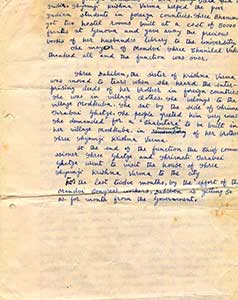 Indira Shyamji Krishna Varma helped the poor
Indian students in foreign countries. Shree Bhanumati
at the health room built at a cost of 80000
francs at Geneva, and gave away the precious
books of her husbands library to the university.
The mayor of Mandvi Shree Himatlal Vida
thanked all and the function was over.
Shree Sakiben, the sister of Krishna Varma
was moved to tears when she heard the enter-
prising deeds of her brother in foreign countries.
She was in village clothes. She belongs to the
village Modkuba. She sat by the side of Shrimati
Tarabai Ghetge. The people greeted him very much.
She demanded for a "thakubara" to be built in
her village Modkuba in memory of her brother
Shree Shyamji Krishna Varma.
At the end of the function the Chief comm-
issioner Shree Ghetge and Shrimati Tarabai
Ghetge went to visit the house of Shree
Shyamji Krishna Varma to the city
For the last twelve months, by the effort of the
Mandvi Congress workers, Sakiben is getting 50
Rs. per month from the Government.